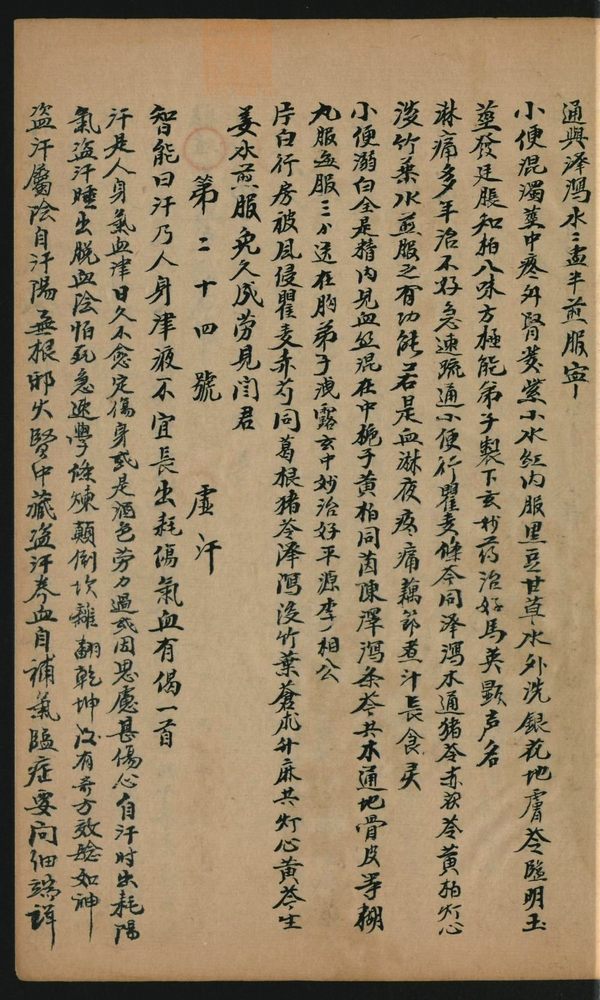 通與澤瀉水二盅半煎服寧
小便混濁莖中疼外腎黃紫小水紅内服黑豆甘草水外洗銀花地膚苓臨明玉
莖發廷脹知柏八味方極能弟子製下玄妙药治好馬英顯声名
淋痛多年治不好急速疏通小便行瞿麦條苓同泽瀉水通猪苓赤茯苓黄柏灯心
淡竹葉水煎服之有功能若是血淋夜疼痛藕節煮汁長食灵
小便溺白全是精内見血丝混在中梔子黄柏同茵陳澤瀉条苓共木通地骨皮等糊
丸服每服三分送在胸弟子洩露玄中妙治好平源李相公
片白行房被風侵瞿麦赤芍同葛根猪苓泽瀉淡竹葉蒼朮升麻共灯心黄苓生
姜水煎服免久成劳見閆君
第二十四號　虚汗
智能曰汗乃人身津液不宜長出耗傷氣血有偈一首
汗是人身氣血津日久不愈定傷身或是酒色劳力過或因思慮甚傷心自汗时出耗陽
氣盗汗睡出脱血陰怕死急速學修煉顛倒坎離翻乾坤没有奇方效驗如神
盗汗屬陰自汗陽無根邪火腎中藏盗汗养血自補氣臨症要向細端詳